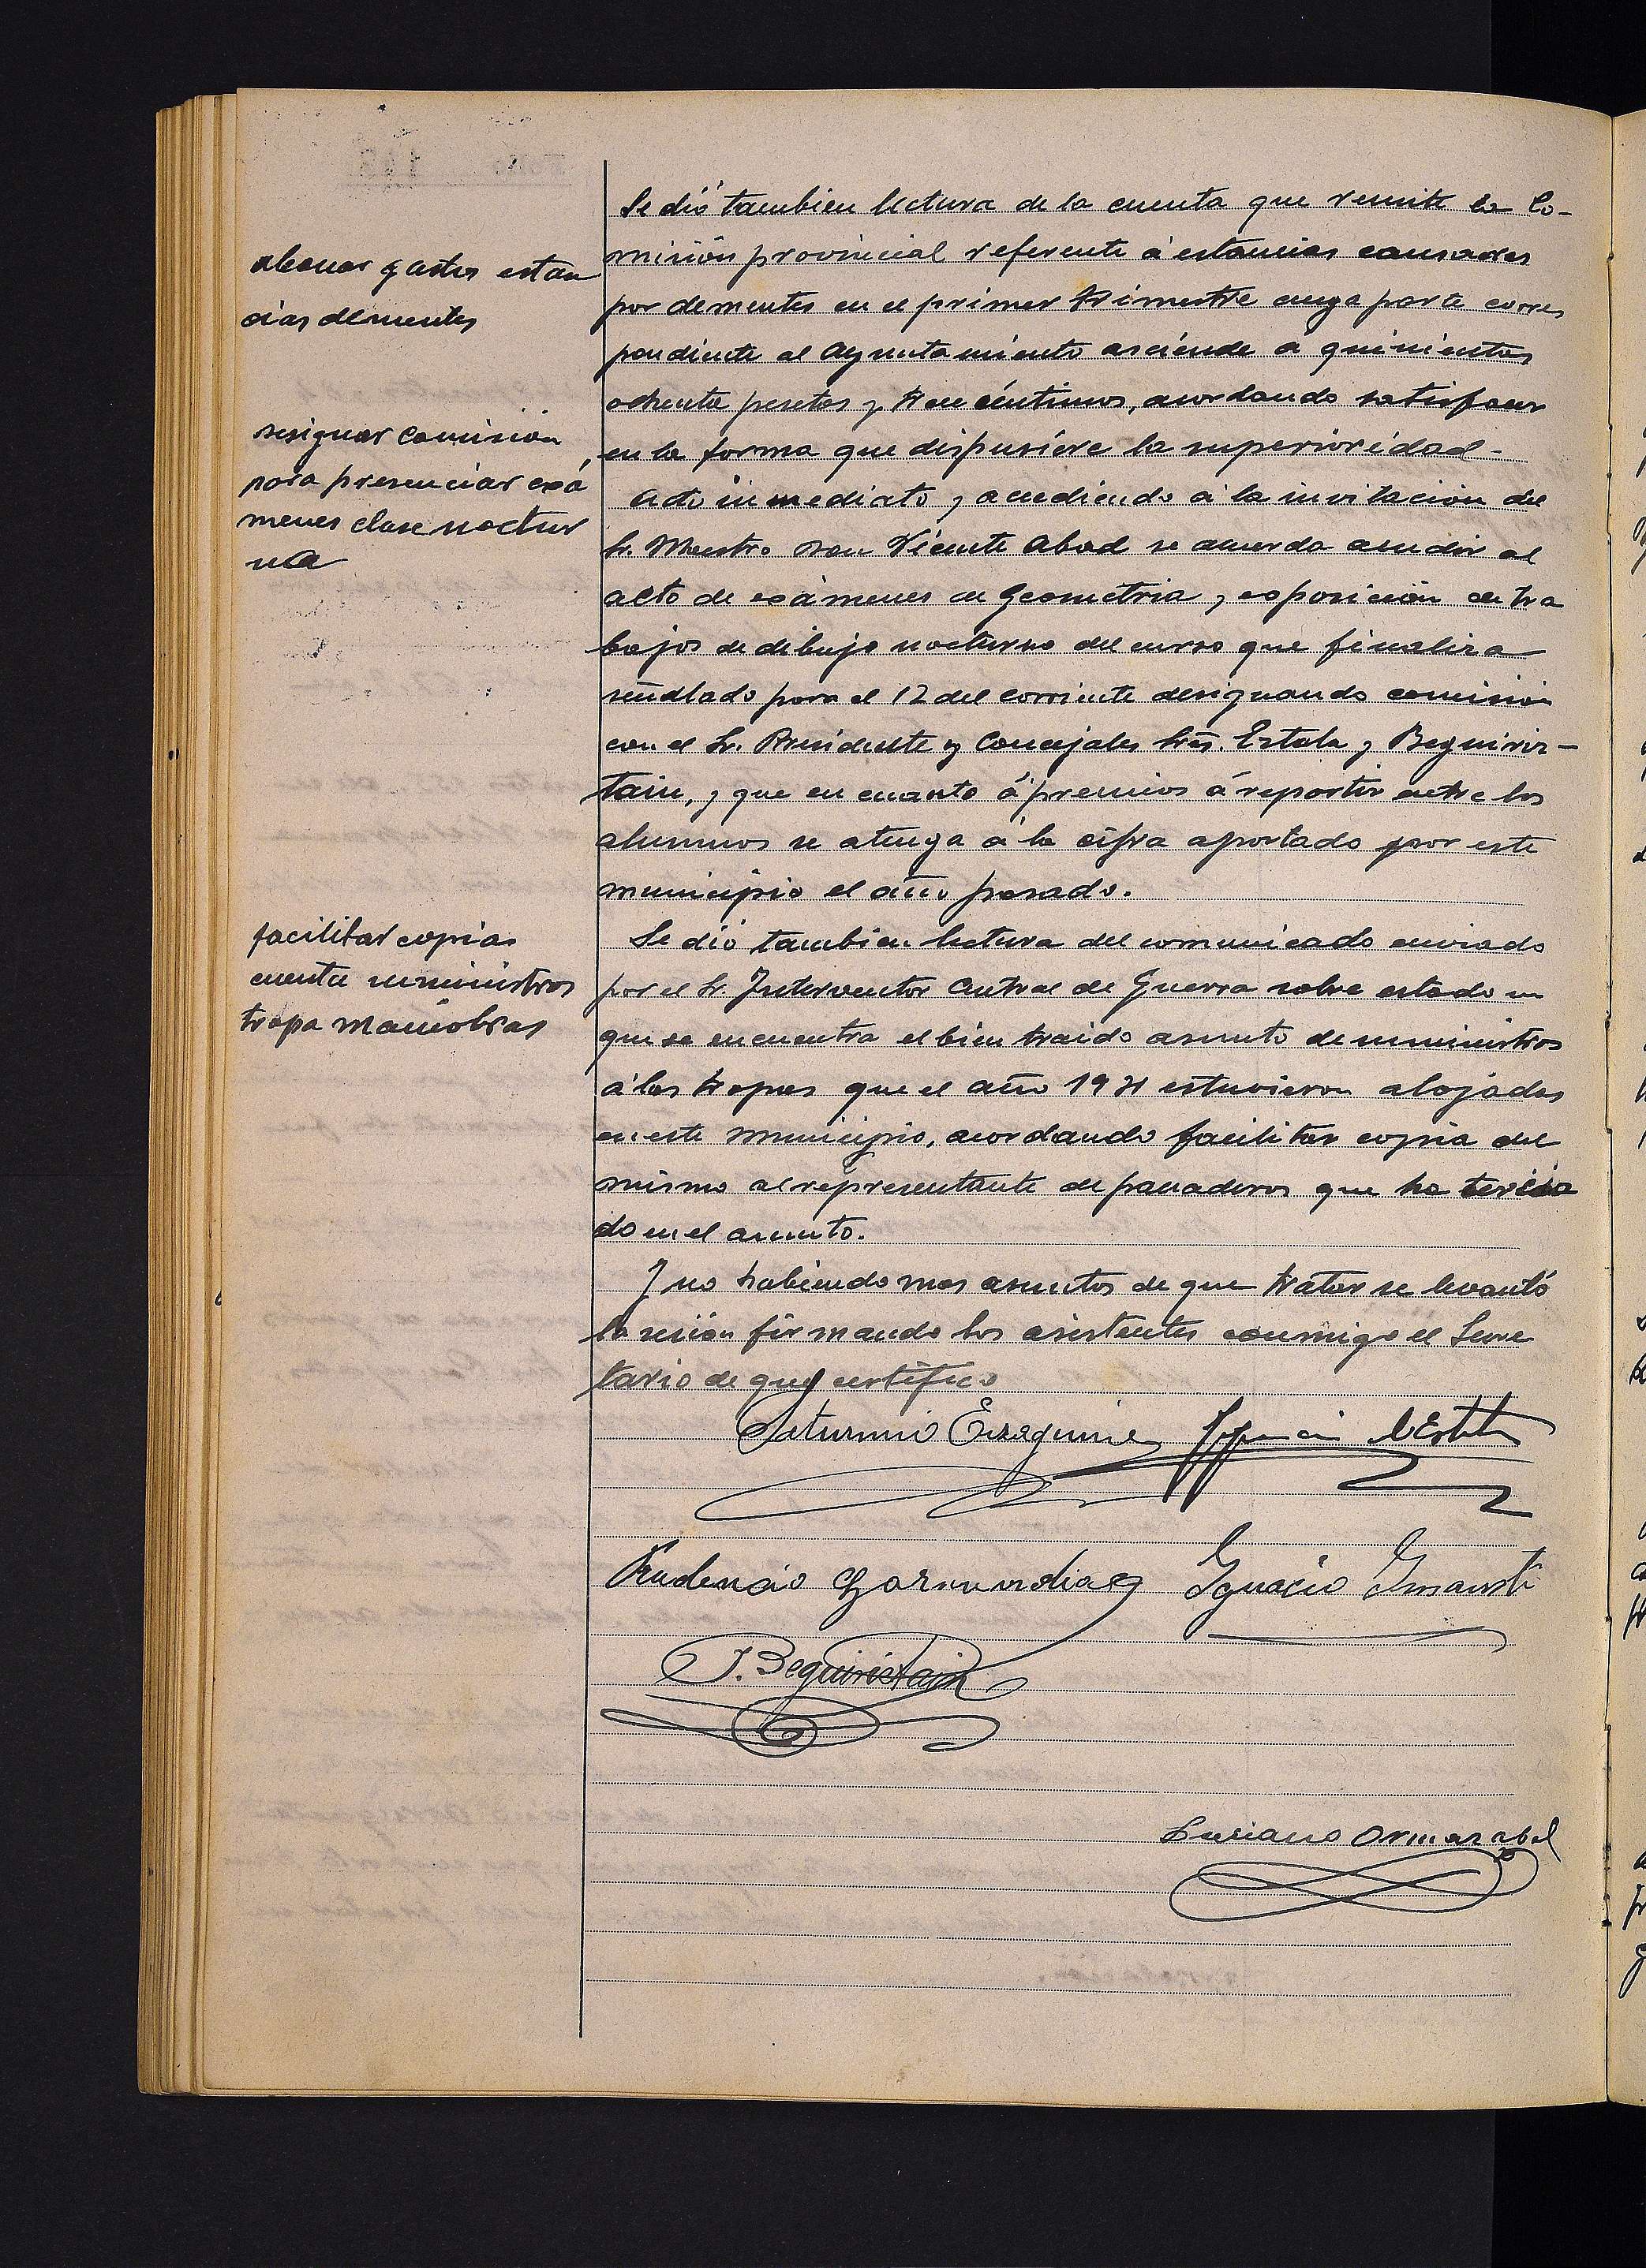 Se dió tambien lectura de la cuenta que remite la Co-
misión provincial referente á estancias causadas
por dementes en el primer trimestre cuya parte corres
pondiente al Ayuntamiento asciende á quinientas
ochenta pesetas y trece céntimos, acordando satisfacer
en la forma que dispusiere la superioridad.-
Acto inmediato, accediendo á la invitación del
Sr. Maestro Don Vicente Abad se acuerda acudir al
acto de exámenes de Geometria, exposición de tra
bajos de dibujo nocturno del curso que finaliza
señalado para el 12 del corriente designando comisión
con el Sr. Presidente y Concejales Srs. Estala y Beguiris-
tain, y que en cuanto á premios á repartir entre los
alumnos se atenga á la cifra aportado por este
municipio el año pasado.
Se dió tambien lectura del comunicado enviado
por el Sr. Interventor Central de Guerra sobre estado en
que se encuentra el bien traido asunto de suministros
á las tropas que el año 1931 estuvieron alojadas
en este municipio, acordando facilitar copia del
mismo al representante de panaderos que ha tercia
do en el asunto.
Y no habiendo mas asuntos de que tratar se levantó
la sesión firmando los asistentes conmigo el Secre
tario de que certifico
abonar gastos estan
cias dementes
designar comisión
para presenciar exá
menes clase noctur
na
facilitar copias
cuenta suministros
tropa maniobras
Saturnino
Prudencio Garmendia Ignacio Insausti
J. Beguiristain
Luciano Ormazabal